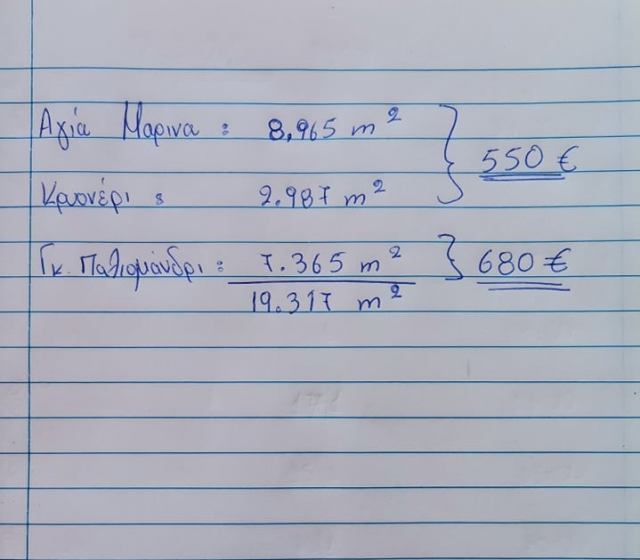 Αγία Μαρινα : 8,965 m² } 550 €
Κρυονέρι : 2.987 m²
Γκ. Παλιομάνδρι : 7.365 m² } 680 €
19.317 m²